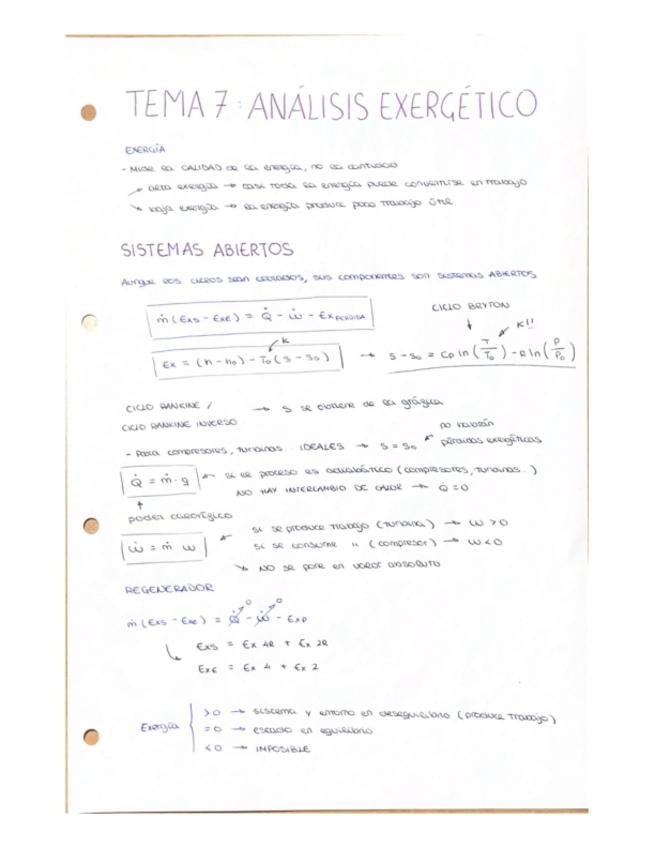 TEMA 7: ANÁLISIS EXERGÉTICO
EXERGÍA
- Mide la CALIDAD de la energía, no la cantidad
↗ alta exergía → casi toda la energía puede convertirse en trabajo
↘ baja exergía → la energía produce poco trabajo útil
SISTEMAS ABIERTOS
Aunque los ciclos sean cerrados, sus componentes son sistemas ABIERTOS
ṁ (Exs - Exe) = Q̇ - Ẇ - Ex PERDIDA
CICLO BRYTON
K
K!!
Ex = (h - h₀) - T₀ (s - s₀) → s - s₀ = Cp ln (T/T₀) - R ln (P/P₀)
CICLO RANKINE /
CICLO RANKINE INVERSO → S se obtiene de la gráfica
- Para compresores, turbinas... IDEALES → s = s₀ no habrán pérdidas exergéticas
Q̇ = ṁ · q
si el proceso es adiabático (compresores, turbinas..)
NO HAY INTERCAMBIO DE CALOR → Q = 0
poder calorífico
Ẇ = ṁ w
si se produce trabajo (turbina) → W > 0
si se consume " (compresor) → W < 0
↘ NO se pone en valor absoluto
REGENERADOR
ṁ (Exs - Exe) = Q̇ - Ẇ - Exp
0
0
Exs = Ex 4R + Ex 2R
Exe = Ex 4 + Ex 2
Exergía
> 0 → sistema y entorno en desequilibrio (produce trabajo)
= 0 → estado en equilibrio
< 0 → IMPOSIBLE